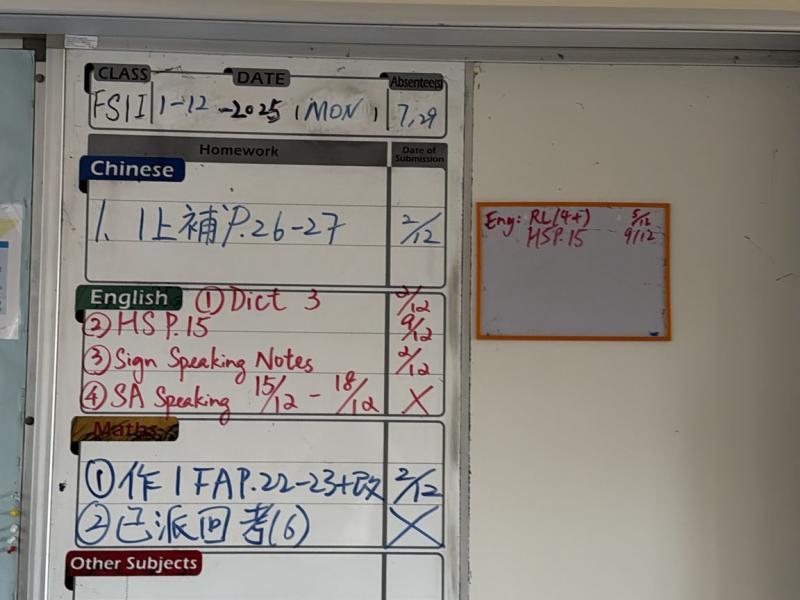 CLASS DATE Absentee(s)
1-12-2025 (MON) 7,29
Homework Date of Submission
Chinese
1. 1上補P.26-27 2/12
English ① Dict 3 2/12
② HS P.15 9/12
③ Sign Speaking Notes 2/12
④ SA Speaking 15/12 - 18/12 X
Maths
① 作1FAP.22-23+改 2/12
② 已派回考(6) X
Other Subjects
Eng: RL(4+) 5/12
HSP.15 9/12